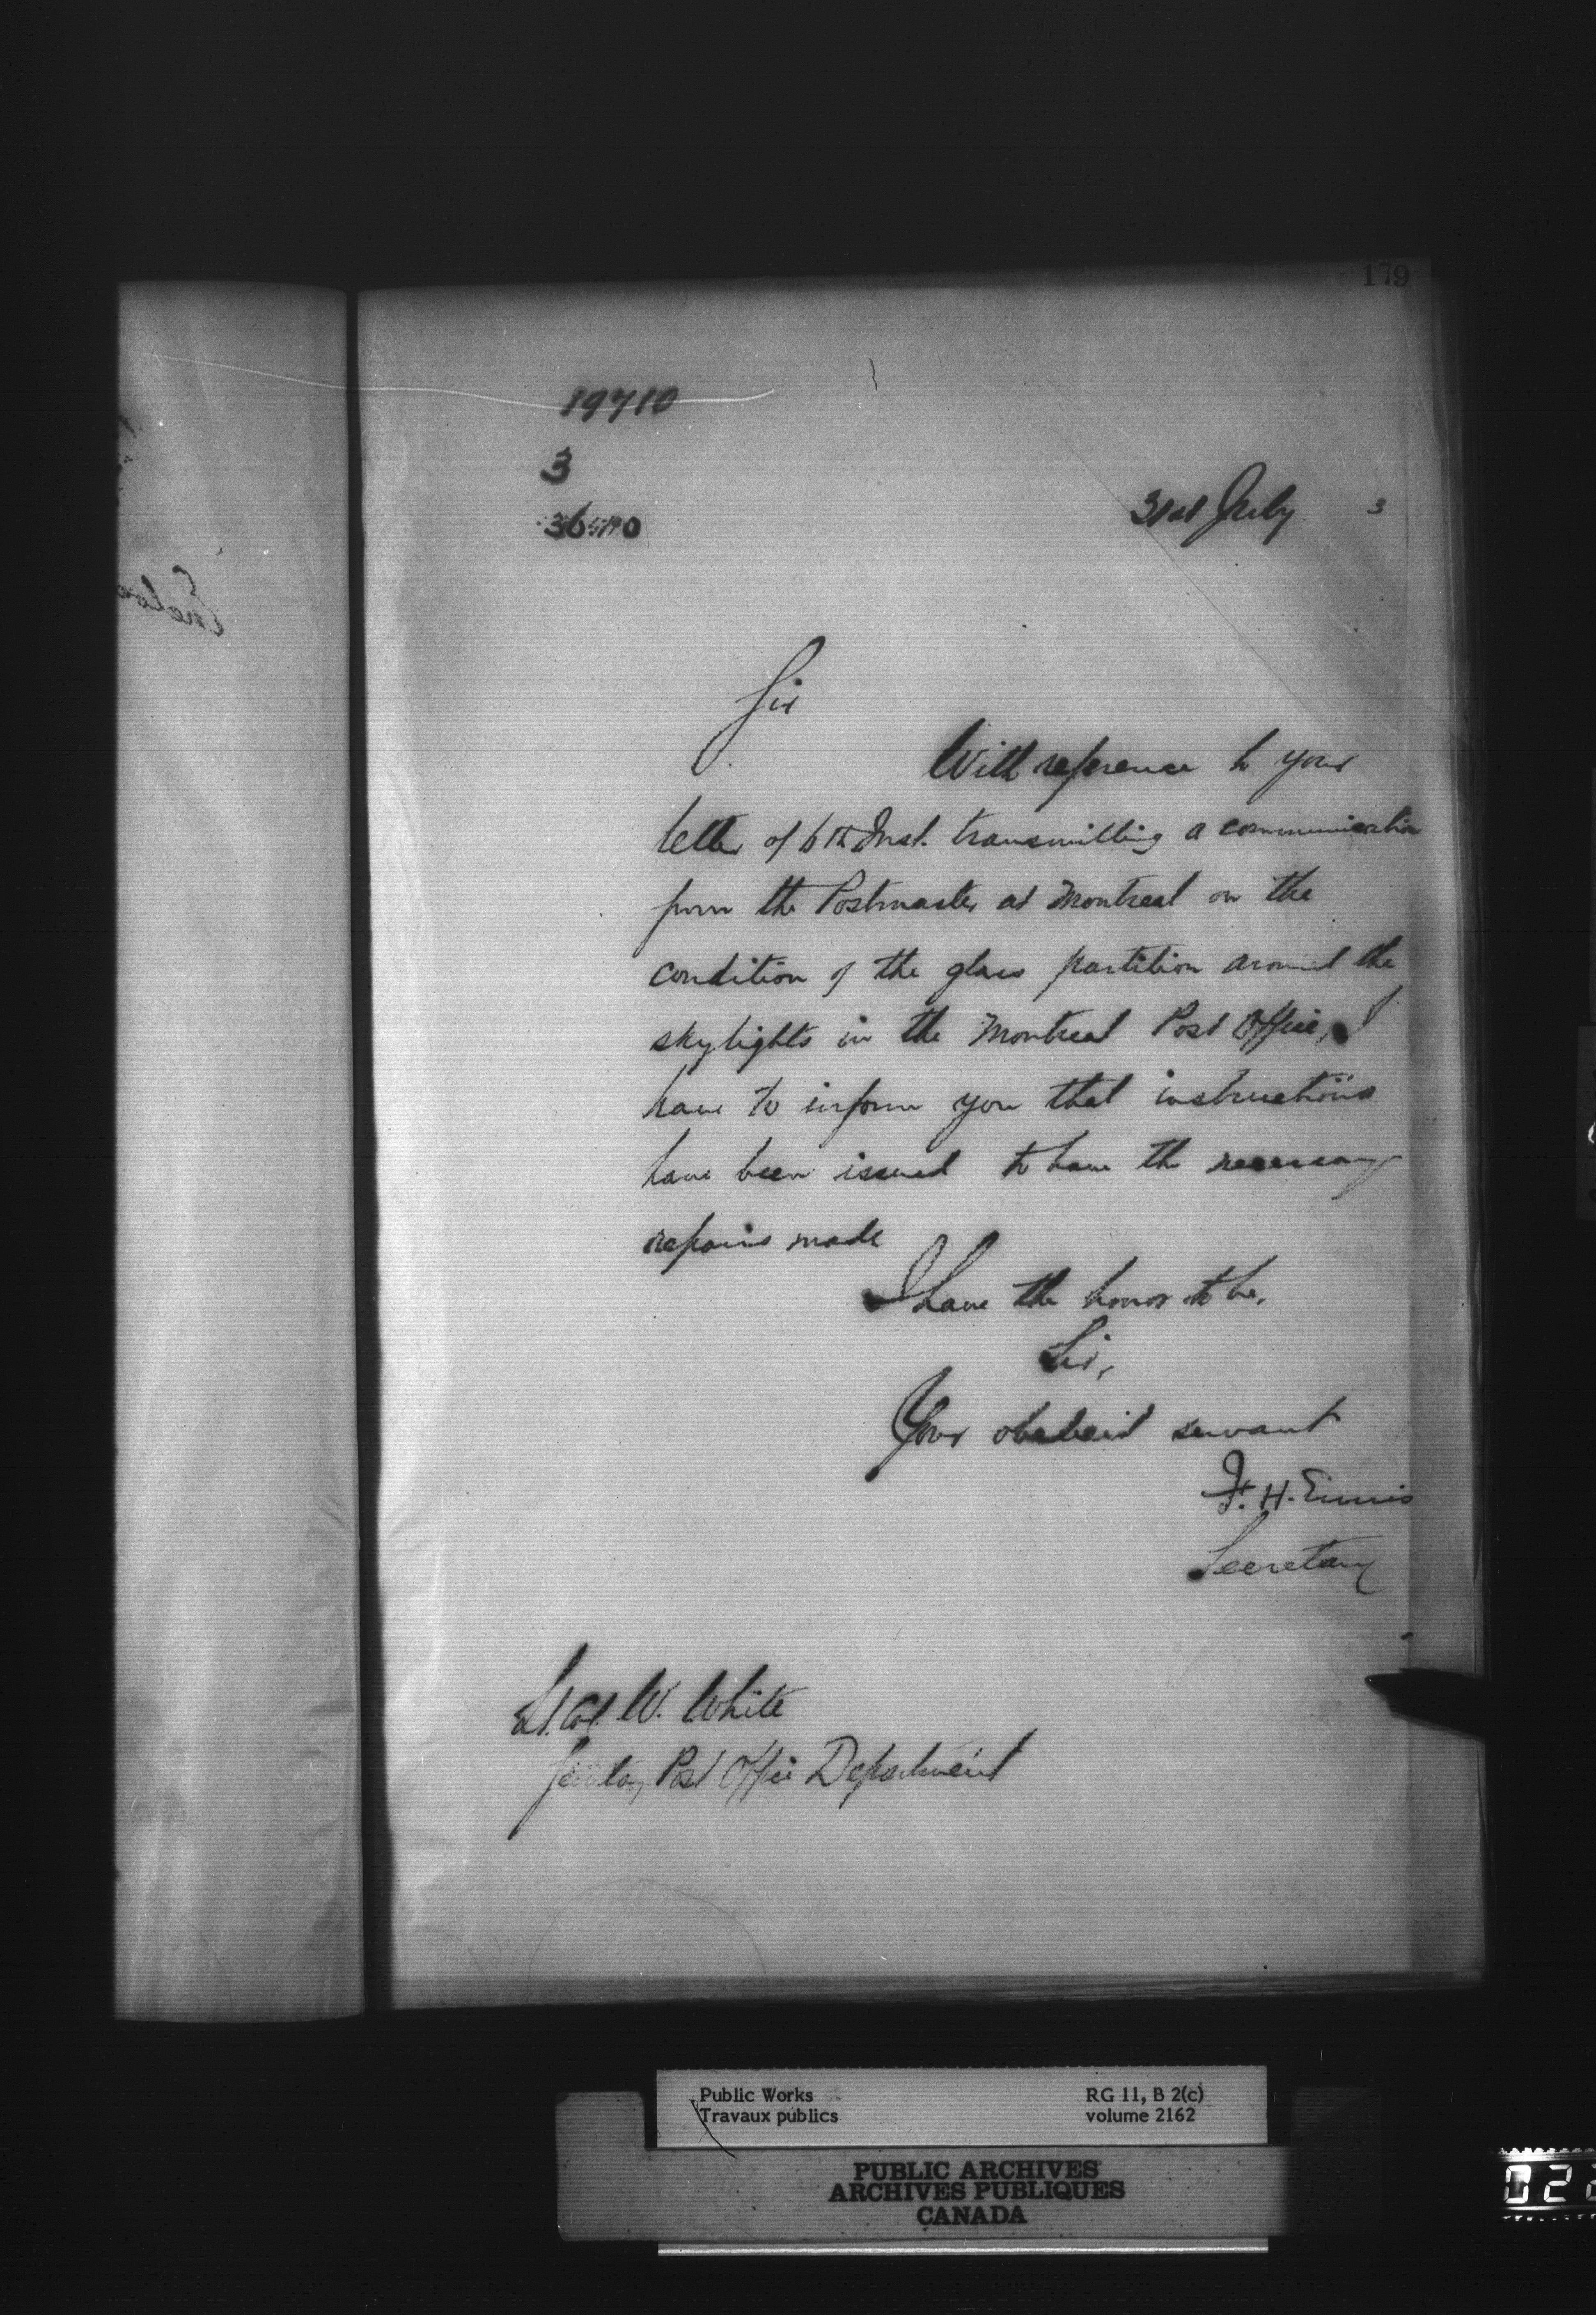 179
19710
3
31st July 3
Sir
With reference to your
letter of 6th Inst. transmitting a communication
from the Postmaster at Montreal on the
condition of the glass partition around the
skylights in the Montreal Post Office, I
have to inform you that instructions
have been issued to have the necessary
repairs made
I have the honor to be,
Sir,
Your obedient servant
F. H. Ennis
Secretary
Lt. Col. W. White
Secretary Post Office Department
Public Works
Travaux publics
RG 11, B 2(c)
volume 2162
PUBLIC ARCHIVES
ARCHIVES PUBLIQUES
CANADA